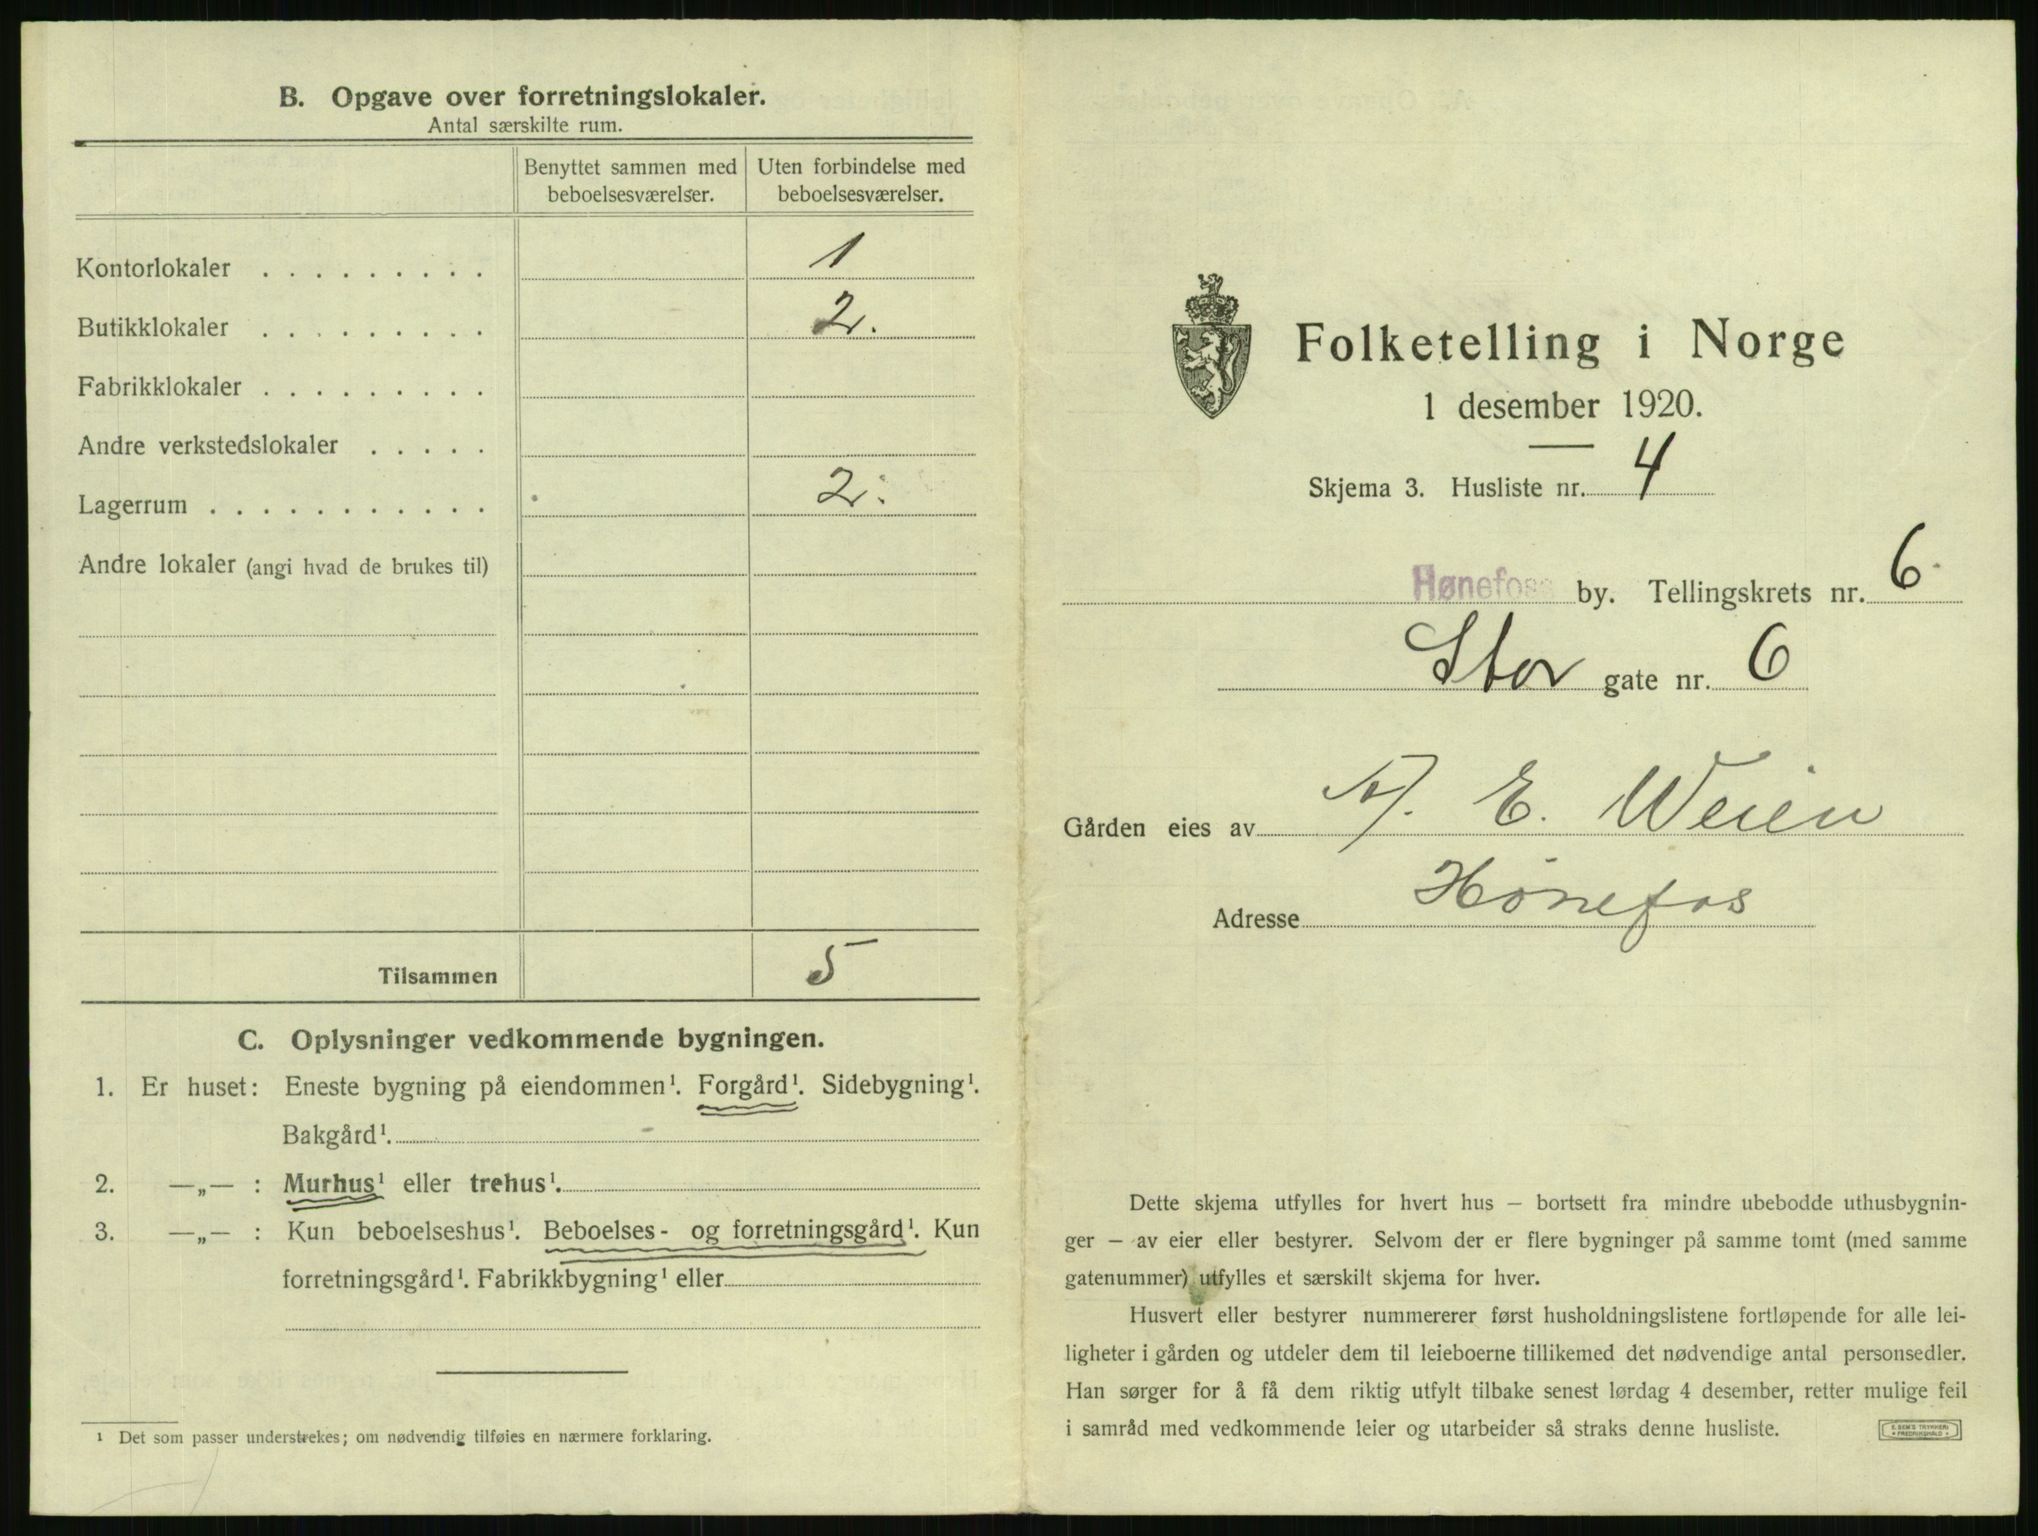 B. Opgave over forretningslokaler.
Antal særskilte rum.
Benyttet sammen med beboelsesværelser.
Uten forbindelse med beboelsesværelser.
Kontorlokaler . . . . . . . . . 1
Butikklokaler . . . . . . . . . 2.
Fabrikklokaler . . . . . . . . .
Andre verkstedslokaler . . . . .
Lagerrum . . . . . . . . . . . 2.
Andre lokaler (angi hvad de brukes til)
Tilsammen 5
C. Oplysninger vedkommende bygningen.
1. Er huset: Eneste bygning på eiendommen¹. Forgård¹. Sidebygning¹.
Bakgård¹.
2. —„— : Murhus¹ eller trehus¹.
3. —„— : Kun beboelseshus¹. Beboelses- og forretningsgård¹. Kun
forretningsgård¹. Fabrikkbygning¹ eller
¹ Det som passer understrekes; om nødvendig tilføies en nærmere forklaring.
Folketelling i Norge
1 desember 1920.
Skjema 3. Husliste nr. 4
Hønefoss by. Tellingskrets nr. 6
Stor gate nr. 6
Gården eies av E. Weien
Adresse Hønefos
Dette skjema utfylles for hvert hus – bortsett fra mindre ubebodde uthusbygnin-
ger – av eier eller bestyrer. Selvom der er flere bygninger på samme tomt (med samme
gatenummer) utfylles et særskilt skjema for hver.
Husvert eller bestyrer nummererer først husholdningslistene fortløpende for alle lei-
ligheter i gården og utdeler dem til leieboerne tillikemed det nødvendige antal personsedler.
Han sørger for å få dem riktig utfylt tilbake senest lørdag 4 desember, retter mulige feil
i samråd med vedkommende leier og utarbeider så straks denne husliste.
E. SEM'S TRYKKERI
FREDRIKSHALD